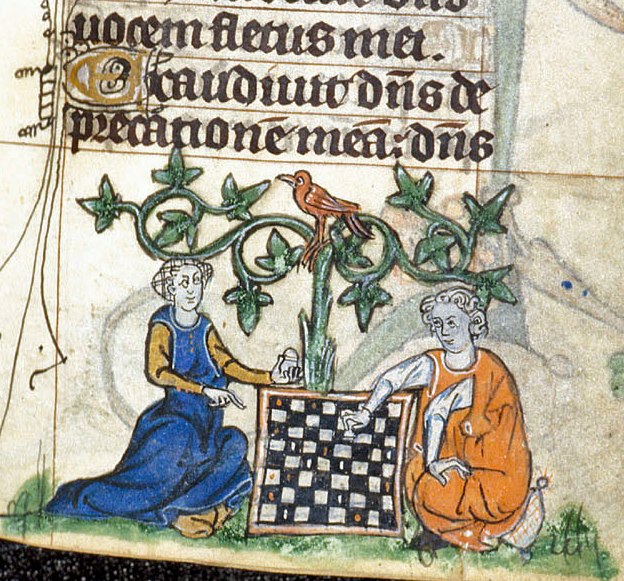 uocem fletus mei.
Exaudiuit dñs de
precationē meā: dñs